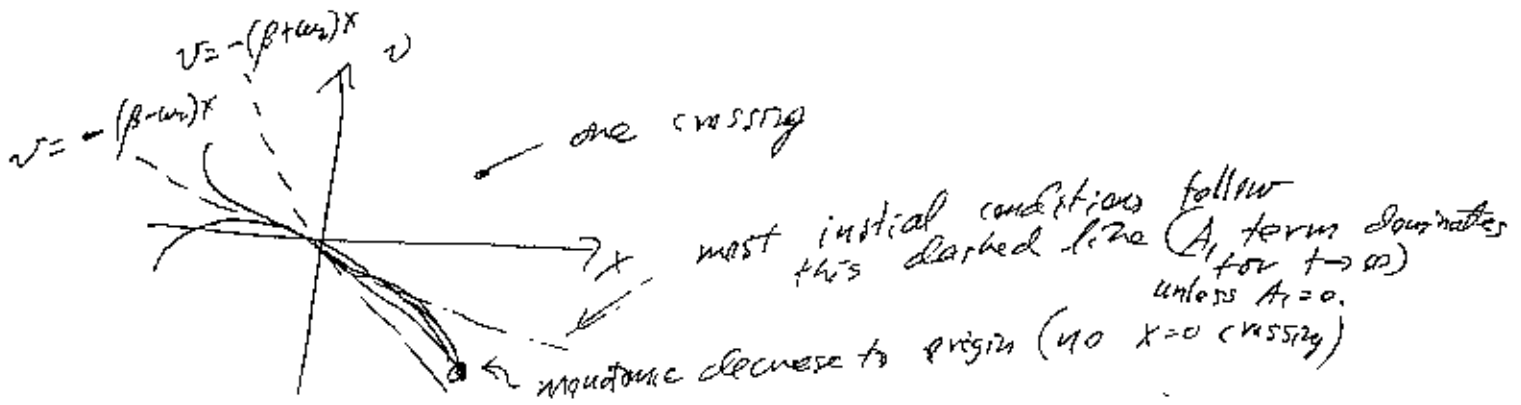 v=-(β+ω₂)x
v
v=-(β-ω₂)x
one crossing
most initial conditions follow
this dashed line (A₁ term dominates
for t→∞)
unless A₁=0.
x
monotonic decrease to origin (no x=0 crossing)